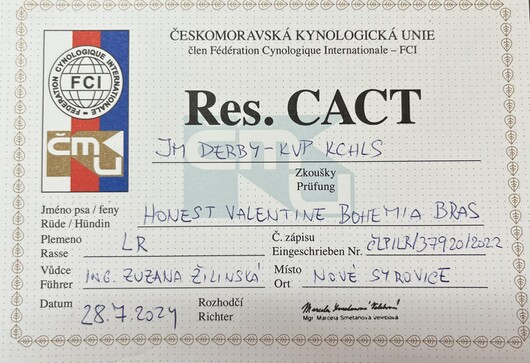 ČESKOMORAVSKÁ KYNOLOGICKÁ UNIE
člen Fédération Cynologique Internationale – FCI
FÉDÉRATION CYNOLOGIQUE INTERNATIONALE
FCI
ČMKU
Res. CACT
JM DERBY-KVP KCHLS
Zkoušky
Prüfung
Jméno psa / feny
Rüde / Hündin
HONEST VALENTINE BOHEMIA BRAS
Plemeno
Rasse
LR
Č. zápisu
Eingeschrieben Nr.
ČLP/LR/37920/2022
Vůdce
Führer
ING. ZUZANA ŽILINSKÁ
Místo
Ort
NOVÉ SYROVICE
Datum
28.7.2024
Rozhodčí
Richter
Mgr Marcela Smetanová Velebová